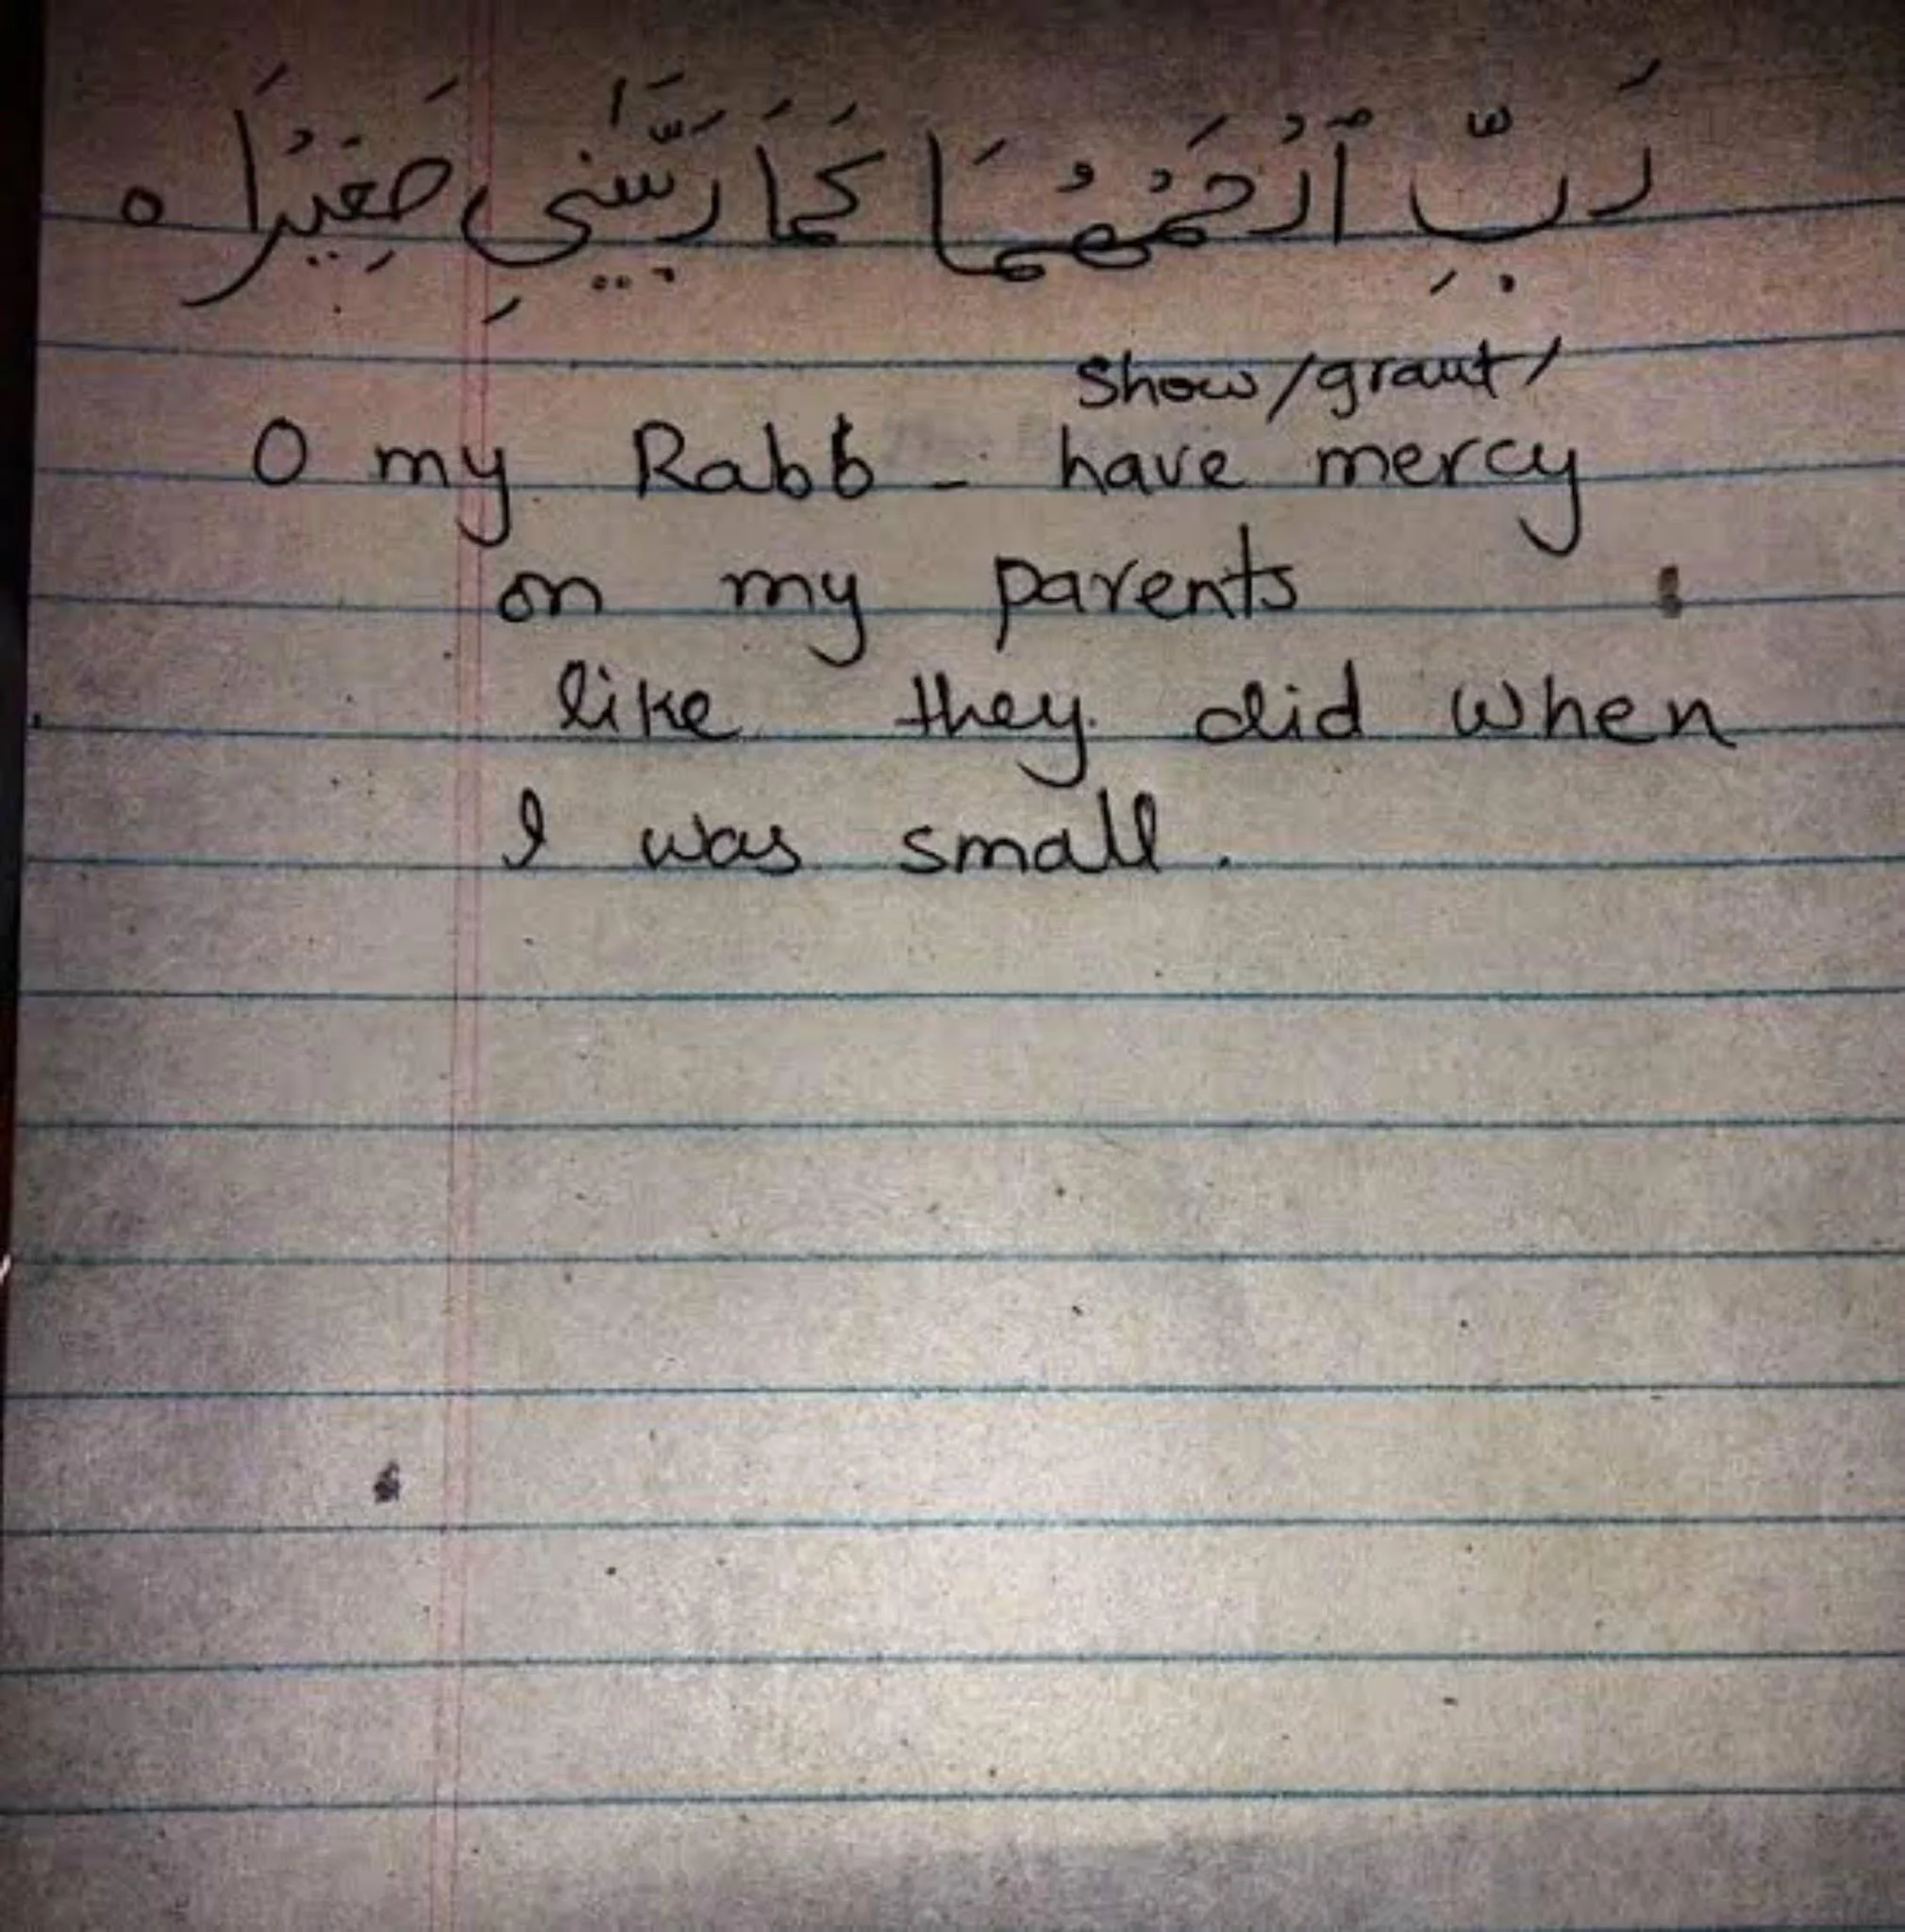 رَبِّ ٱرْحَمْهُمَا كَمَا رَبَّيَٰنِي صَغِيْرًا ه
Show/grant/
O my Rabb - have mercy
on my parents
like they did when
I was small.